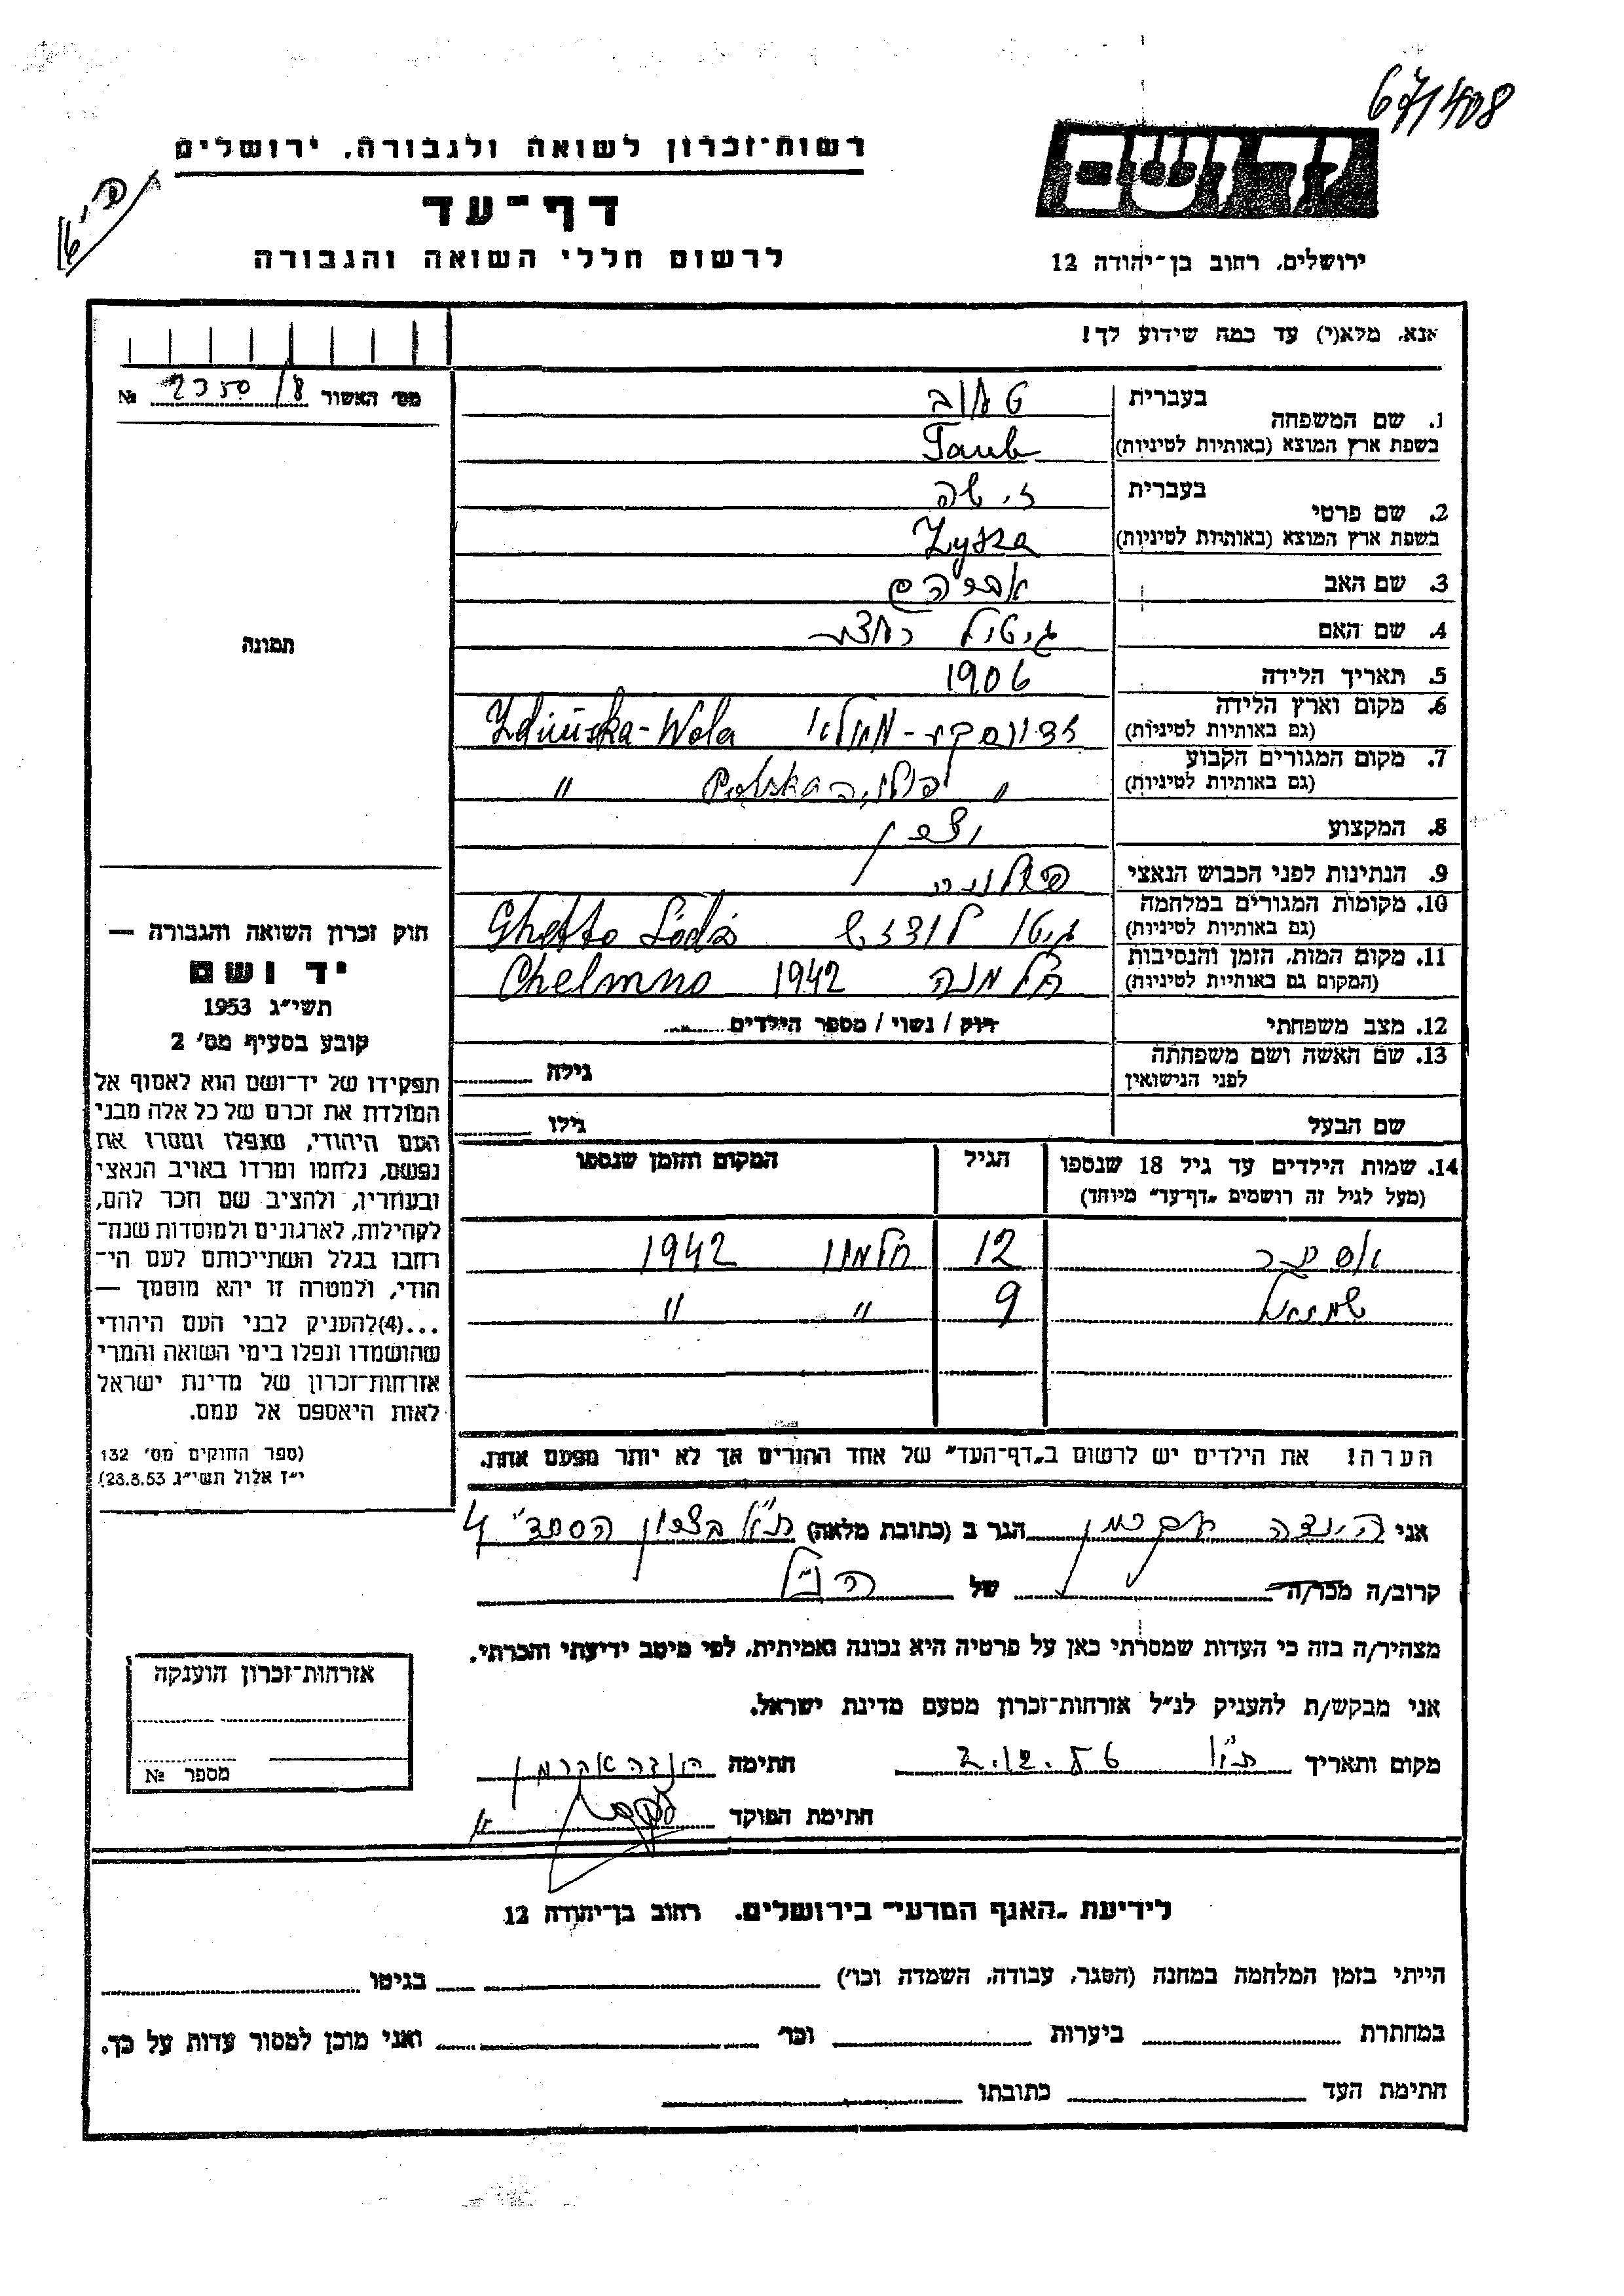 67/408
רשות־זכרון לשואה ולגבורה, ירושלים
דף־עד
לרשום חללי השואה והגבורה
ירושלים, רחוב בן־יהודה 12
אנא, מלא(י) עד כמה שידוע לך!
מס׳ האשור 2350/8 №
1. שם המשפחה
בעברית טאוב
בשפת ארץ המוצא (באותיות לטיניות) Taub
2. שם פרטי
בעברית זישה
בשפת ארץ המוצא (באותיות לטיניות) Zysza
3. שם האב אברהם
4. שם האם גיטל
5. תאריך הלידה 1906
6. מקום וארץ הלידה Zduńska-Wola
(גם באותיות לטיניות)
7. מקום המגורים הקבוע " פולניה Polska "
(גם באותיות לטיניות)
8. המקצוע
9. הנתינות לפני הכבוש הנאצי פולניה
10. מקומות המגורים במלחמה גיטו לודז׳ Ghetto Łódź
(גם באותיות לטיניות)
11. מקום המות, הזמן והנסיבות חלמנה 1942 Chelmno
(המקום גם באותיות לטיניות)
12. מצב משפחתי רוק / נשוי / מספר הילדים
13. שם האשה ושם משפחתה גילה
לפני הנישואין
שם הבעל גילו
תמונה
חוק זכרון השואה והגבורה —
יד ושם
תשי״ג 1953
קובע בסעיף מס׳ 2
תפקידו של יד־ושם הוא לאסוף אל
המולדת את זכרם של כל אלה מבני
העם היהודי, שנפלו ומסרו את
נפשם, נלחמו ומרדו באויב הנאצי
ובעוזריו, ולהציב שם וזכר להם,
לקהילות, לארגונים ולמוסדות שנח־
רחבו בגלל השתייכותם לעם הי־
הודי, ולמטרה זו יהא מוסמך —
...(4)להעניק לבני העם היהודי
שהושמדו ונפלו בימי השואה והמרי
אזרחות־זכרון של מדינת ישראל
לאות היאספם אל עמם.
(ספר החוקים מס׳ 132
י״ז אלול תשי״ג 28.8.53)
14. שמות הילדים עד גיל 18 שנספו הגיל המקום והזמן שנספו
(מעל לגיל זה רושמים „דף־עד״ מיוחד)
אסתר 12 חלמנו 1942
שמואל 9 " "
הערה! את הילדים יש לרשום ב„דף־העד״ של אחד ההורים אך לא יותר מפעם אחת.
אני הינדה אקרמן הגר ב (כתובת מלאה) ת״א
קרוב/ה מכר/ה של הנ״ל
מצהיר/ה בזה כי העדות שמסרתי כאן על פרטיה היא נכונה ואמיתית, לפי מיטב ידיעתי והכרתי.
אני מבקש/ת להעניק לנ״ל אזרחות־זכרון מטעם מדינת ישראל.
מקום ותאריך ת״א 2.12.56 חתימה הינדה אקרמן
חתימת הפוקד
אזרחות־זכרון הוענקה
מספר №
לידיעת „האגף המדעי״ בירושלים, רחוב בן־יהודה 12
הייתי בזמן המלחמה במחנה (הסגר, עבודה, השמדה וכו׳) בגיטו
במחתרת ביערות וכו׳ ואני מוכן למסור עדות על כך.
חתימת העד כתובתו